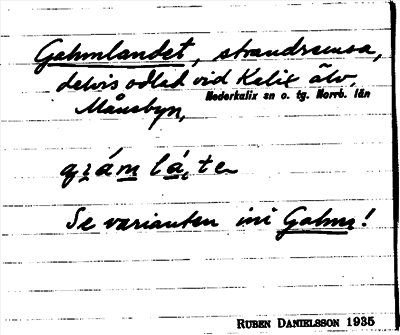 Gahmlandet, strandremsa,
delvis odlad vid Kalix älv,
Nederkalix sn o. tg. Norrb. län
Månsbyn,
Se varianten in i Gahm!
RUBEN DANIELSSON 1935